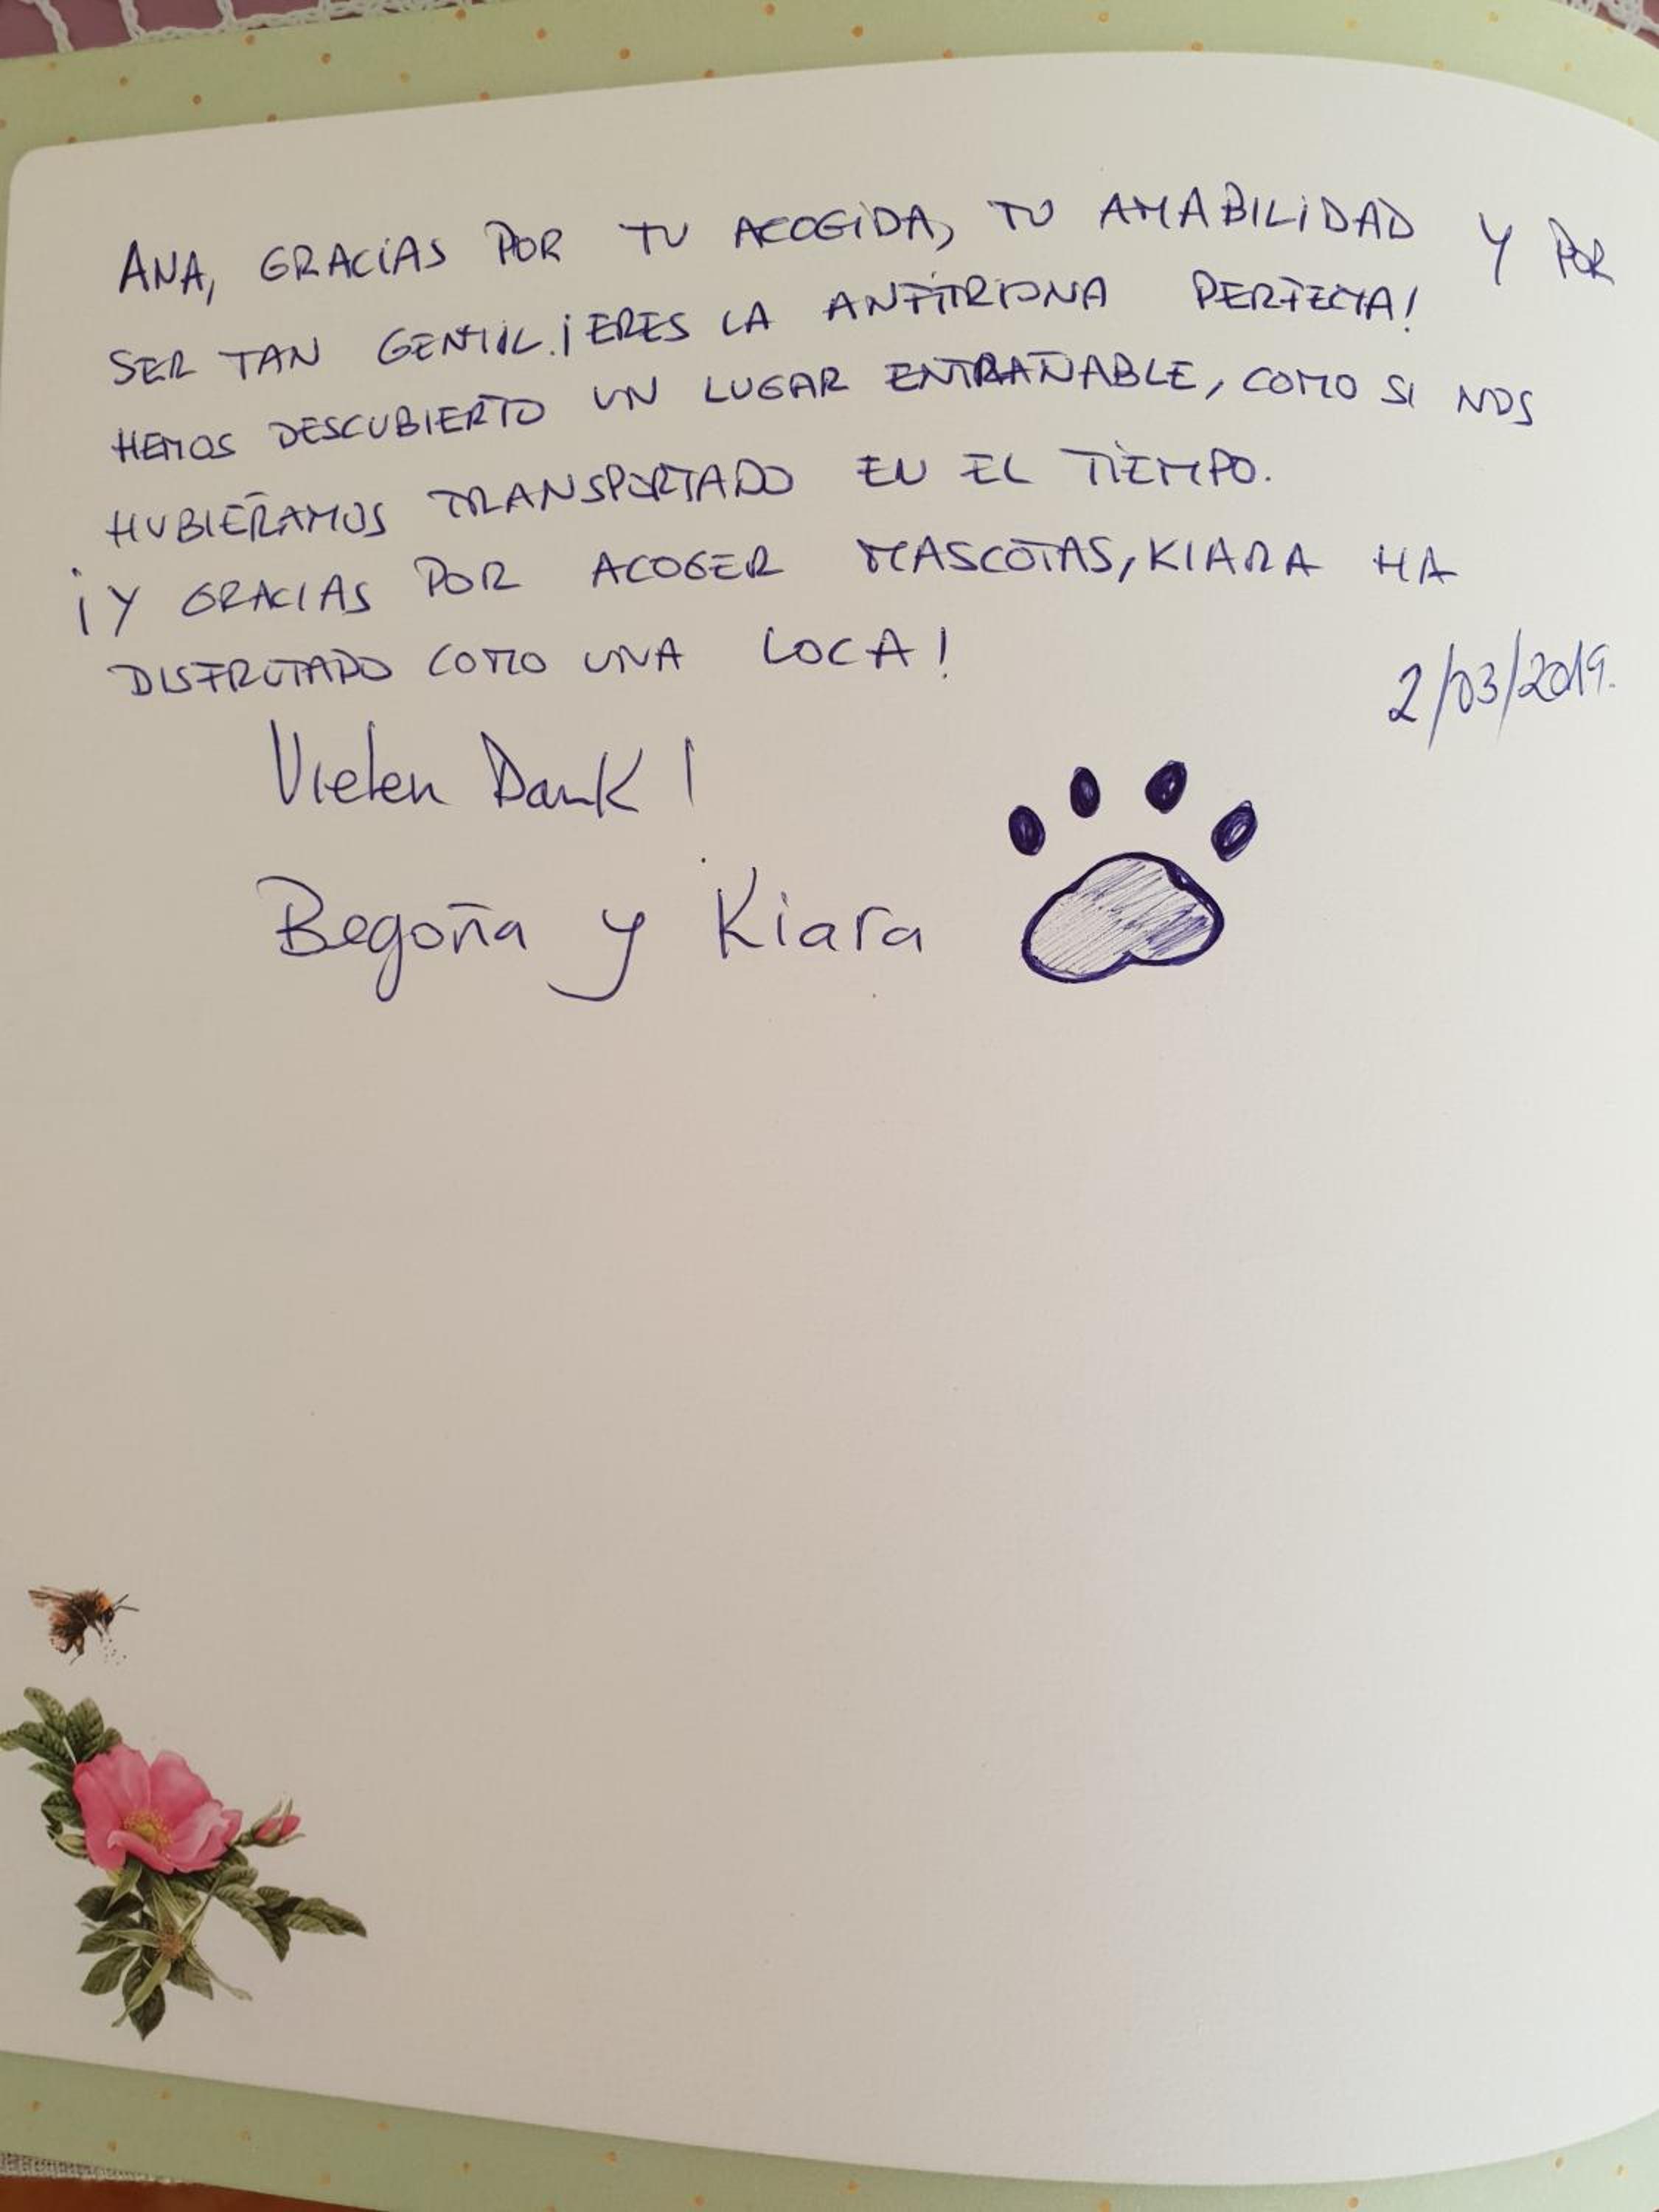 ANA, GRACIAS POR TU ACOGIDA, TU AMABILIDAD Y POR
SER TAN GENTIL. ¡ERES LA ANFITRIONA PERFECTA!
HEMOS DESCUBIERTO UN LUGAR ENTRAÑABLE, COMO SI NOS
HUBIERAMOS TRANSPORTADO EN EL TIEMPO.
¡Y GRACIAS POR ACOGER MASCOTAS, KIARA HA
DISFRUTADO COMO UNA LOCA!
2/03/2019.
Vielen Dank!
Begoña y Kiara